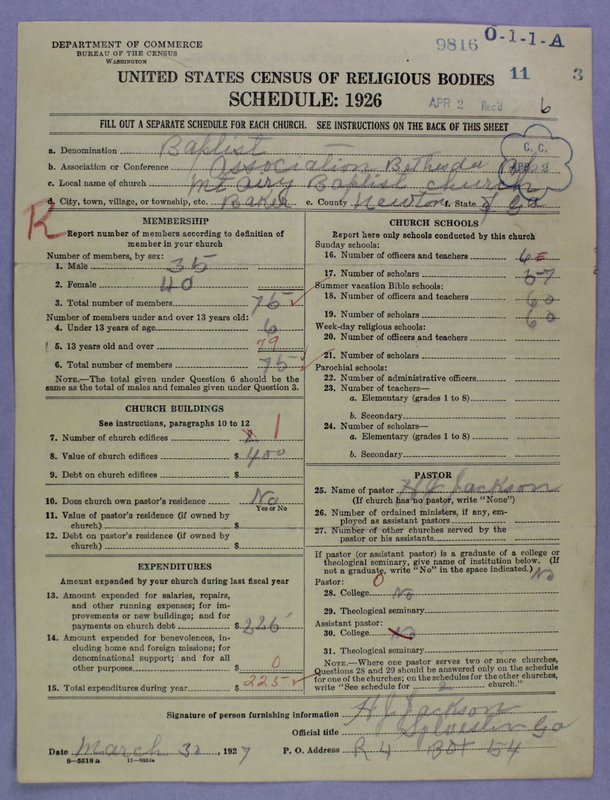 DEPARTMENT OF COMMERCE
BUREAU OF THE CENSUS
WASHINGTON
9816 O-1-1-A
UNITED STATES CENSUS OF RELIGIOUS BODIES 11 3
SCHEDULE: 1926
APR 2 Rec'd 6
FILL OUT A SEPARATE SCHEDULE FOR EACH CHURCH. SEE INSTRUCTIONS ON THE BACK OF THIS SHEET
C. C.
a. Denomination Baptist
b. Association or Conference Association Bethuda
c. Local name of church Mt Airy Baptist church
d. City, town, village, or township, etc. Baker e. County Newton f. State Ga
R
MEMBERSHIP
Report number of members according to definition of
member in your church
Number of members, by sex:
1. Male 35
2. Female 40
3. Total number of members 75
Number of members under and over 13 years old:
4. Under 13 years of age 6
5. 13 years old and over
6. Total number of members 75
NOTE.—The total given under Question 6 should be the
same as the total of males and females given under Question 3.
CHURCH BUILDINGS
See instructions, paragraphs 10 to 12
7. Number of church edifices 1
8. Value of church edifices $ 400
9. Debt on church edifices $
10. Does church own pastor's residence No
Yes or No
11. Value of pastor's residence (if owned by
church) $
12. Debt on pastor's residence (if owned by
church) $
EXPENDITURES
Amount expended by your church during last fiscal year
13. Amount expended for salaries, repairs,
and other running expenses; for im-
provements or new buildings; and for
payments on church debt $ 225
14. Amount expended for benevolences, in-
cluding home and foreign missions; for
denominational support; and for all
other purposes $ 0
15. Total expenditures during year $ 225
CHURCH SCHOOLS
Report here only schools conducted by this church
Sunday schools:
16. Number of officers and teachers 6
17. Number of scholars 57
Summer vacation Bible schools:
18. Number of officers and teachers 60
19. Number of scholars 60
Week-day religious schools:
20. Number of officers and teachers
21. Number of scholars
Parochial schools:
22. Number of administrative officers
23. Number of teachers—
a. Elementary (grades 1 to 8)
b. Secondary
24. Number of scholars—
a. Elementary (grades 1 to 8)
b. Secondary
PASTOR
25. Name of pastor H J Jackson
(If church has no pastor, write "None")
26. Number of ordained ministers, if any, em-
ployed as assistant pastors
27. Number of other churches served by the
pastor or his assistants
If pastor (or assistant pastor) is a graduate of a college or
theological seminary, give name of institution below. (If
not a graduate, write "No" in the space indicated.) No
Pastor: 0
28. College No
29. Theological seminary
Assistant pastor:
30. College No
31. Theological seminary
NOTE.—Where one pastor serves two or more churches,
Questions 28 and 29 should be answered only on the schedule
for one of the churches; on the schedules for the other churches,
write "See schedule for 2 church."
Signature of person furnishing information H J Jackson
Official title Sylvester Ga
Date March 32, 1927 P. O. Address R 4 Box 54
8-5518 a 11-9554